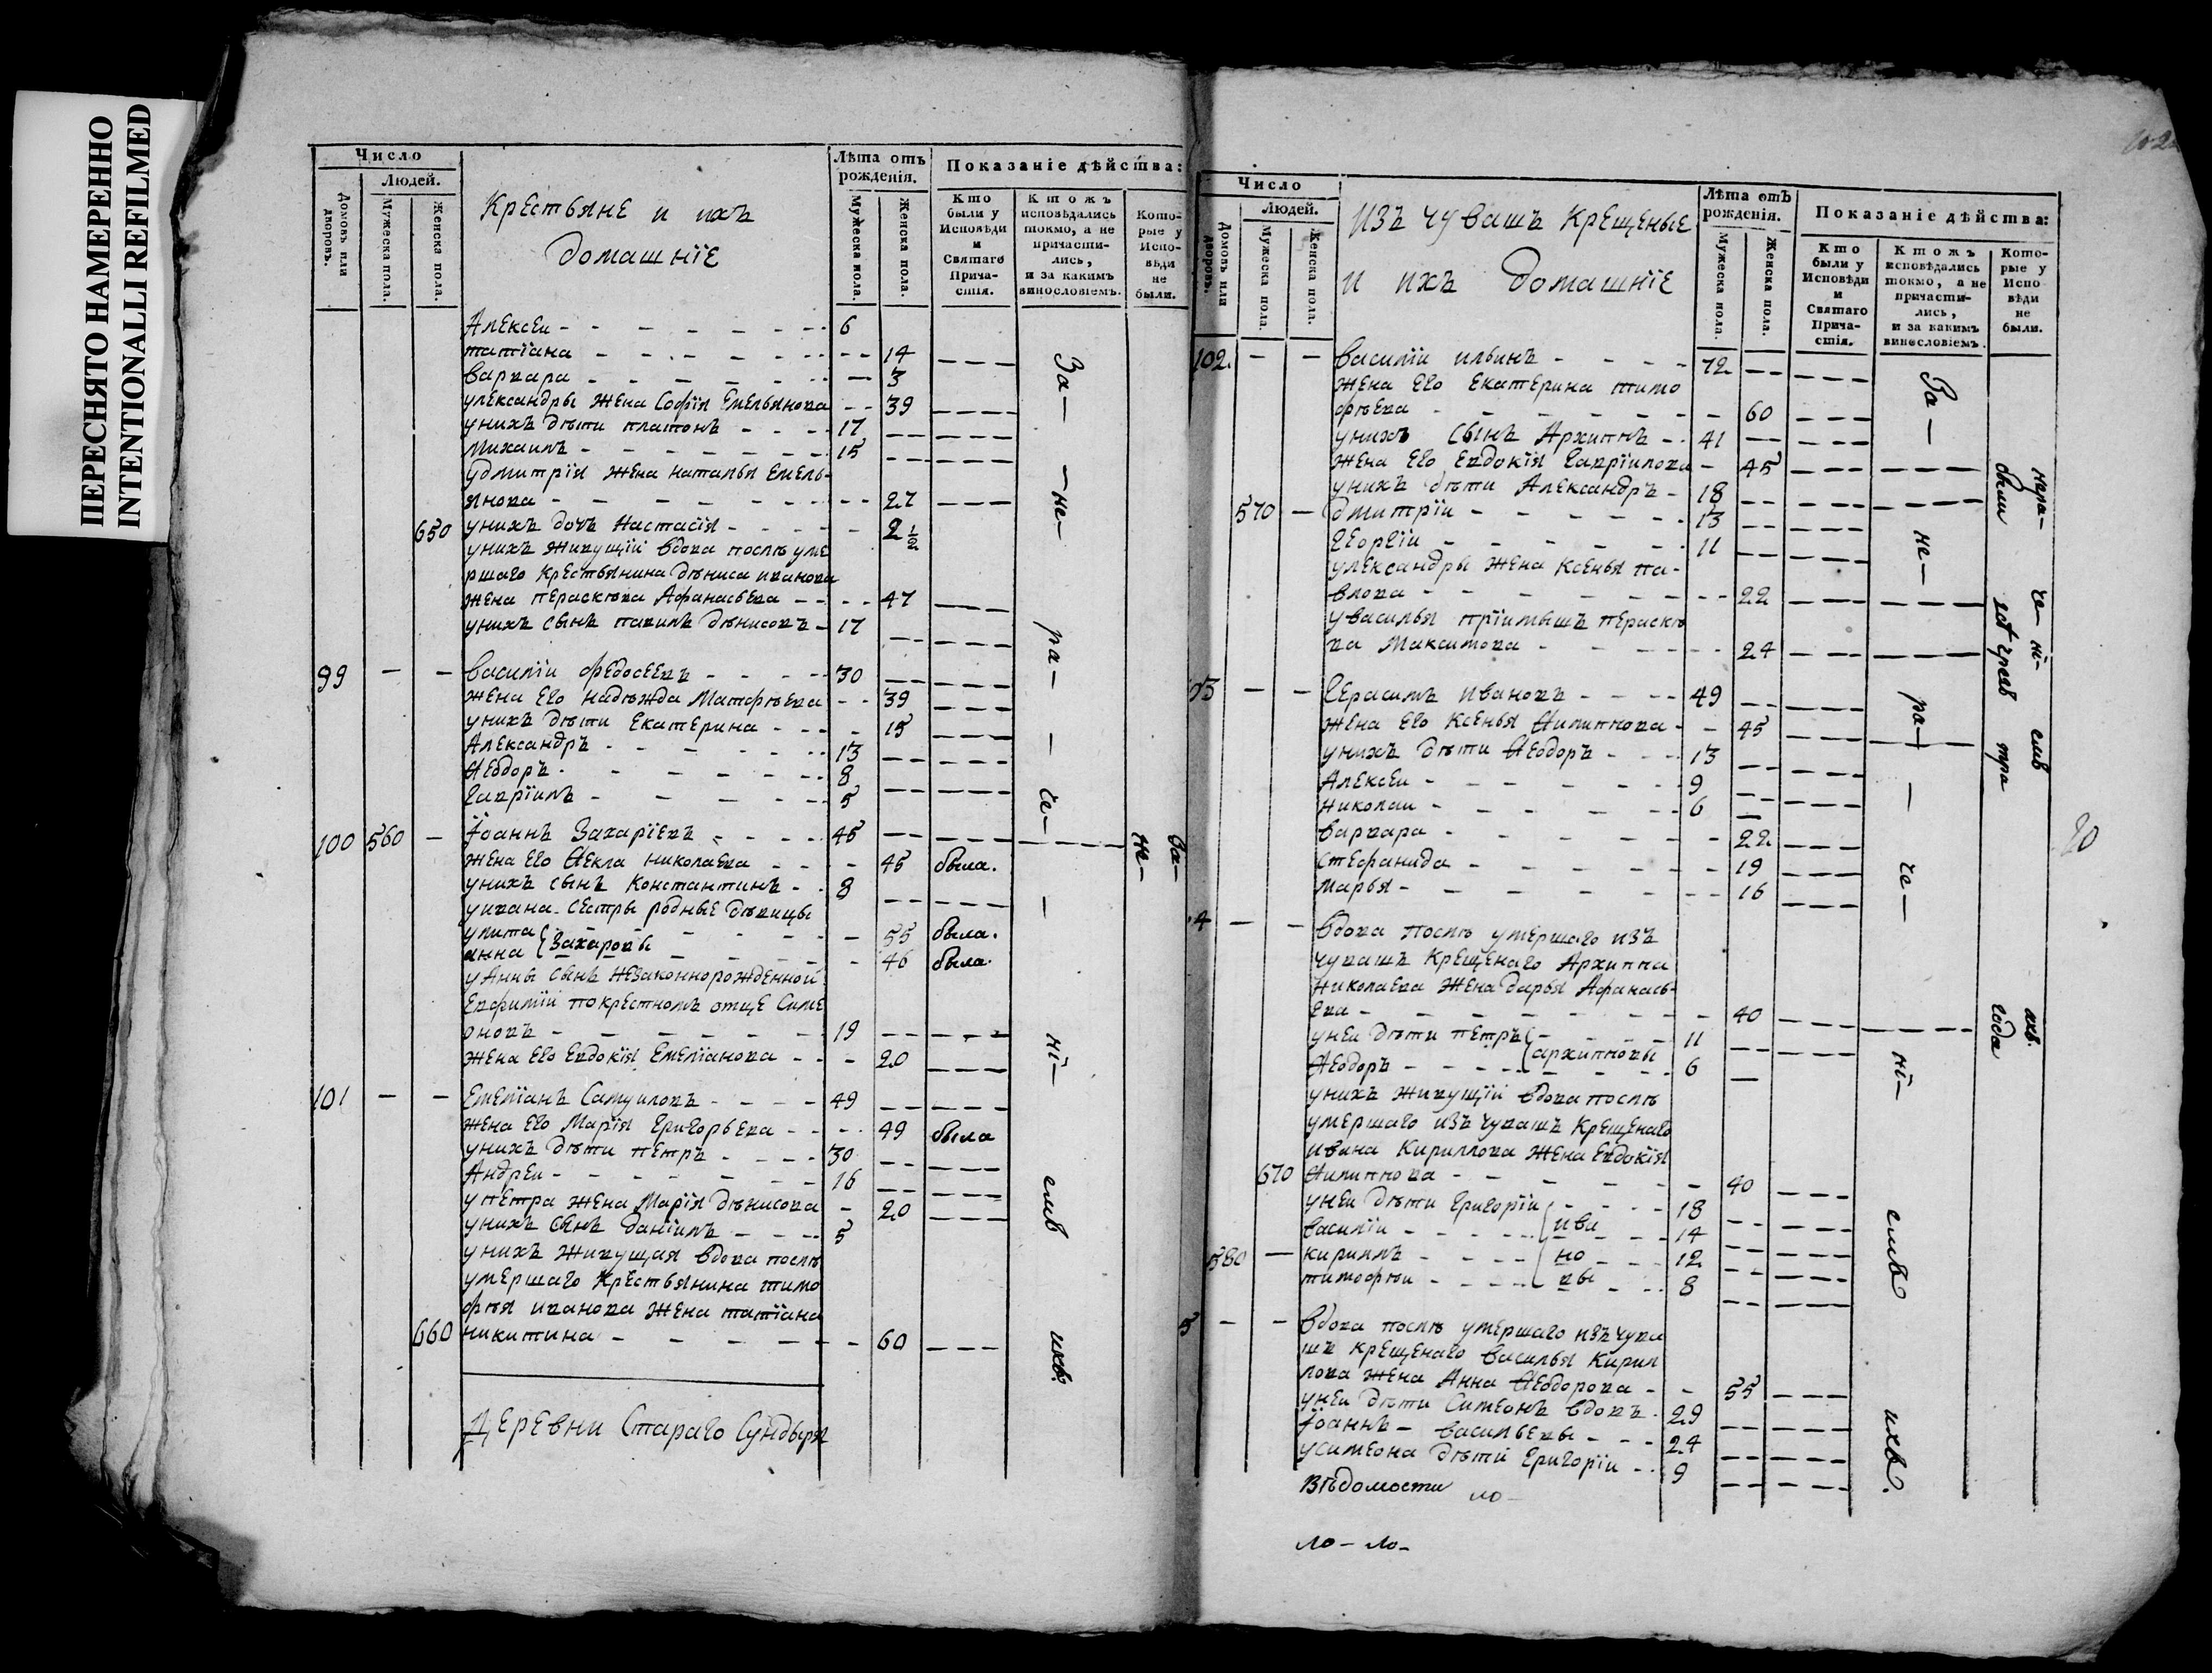 ПЕРЕСНЯТО НАМЕРЕННО
INTENTIONALLI REFILMED
Число
Людей.
Домовъ или дворовъ.
Мужеска пола.
Женска пола.
Крестьяне и ихъ
домашнїе
Лѣта отъ рожденїя.
Мужеска пола.
Женска пола.
Показанїе дѣйства:
Кто были у Исповѣди и Святаго Причастїя.
Ктожъ исповѣдались токмо, а не причастились, и за какимъ винословїемъ.
Которые у Исповѣди не были.
Алексеи - 6
татїана - 14
варвара - 3
уалександры жена Софїя Емельянова - 39
унихъ дѣти платонъ - 17
Михаилъ - 15
удмитрїя жена наталья Емель-
янова - 27
650 унихъ дочь Настасїя - 2 1/2
унихъ живущїй вдова послѣ уме
ршаго крестьянина дѣниса иванова
жена пераскова Афанасьева - 47
унихъ сынъ павилъ дѣнисовъ - 17
99 - - василїи федосеевъ - 30
жена его надѣжда Матфѣева - 39
унихъ дѣти Екатерина - 15
Александръ - 13
Ѳеодоръ - 8
гаврїилъ - 5
100 560 - Їоаннъ Захарїевъ - 45
жена его Ѳекла николаева - 45 была.
унихъ сынъ Константинъ - 8
уивана сестры родные дѣвицы
улита - 55 была.
анна Захаровы - 46 была.
уАнны сынъ незаконнорожденной
Евфимїй покрестномъ отце Симе
оновъ - 19
жена его Евдокїя Емелїанова - 20
101 - - Емелїанъ Самуиловъ - 49
жена его Марїя григорьева - 49 была
унихъ дѣти петръ - 30
Андреи - 16
упетра жена Марїя дѣнисова - 20
унихъ сынъ данїилъ - 5
унихъ живущая вдова послѣ
умершаго крестьянина тимо
фѣя иванова жена татїана
660 никитина - 60
За - не - ра - че - нї - емъ ихъ.
За-
не-
Деревни Стараго Сундыря
Число
Людей.
Домовъ или дворовъ.
Мужеска пола.
Женска пола.
изъ чувашъ крещеные
и ихъ домашнїе
Лѣта отъ рожденїя.
Мужеска пола
Женска пола.
Показанїе дѣйства:
Кто были у Исповѣди и Святаго Причастїя.
Ктожъ исповѣдались токмо, а не причастились, и за какимъ винословїемъ.
Которые у Исповѣди не были.
102. - - василїи ильинъ - 72
жена его екатерина тимо
фѣева - 60
унихъ сынъ Архиппъ - 41
жена его евдокїя гаврїилова - 45
унихъ дѣти Александръ - 18
570 - дмитрїи - 13
георгїи - 11
уалександры жена ксенья па-
влова - 22
увасилья прїимышъ пераско
ва Максимова - 24
03 - - герасимъ ивановъ - 49
жена его ксенья Ѳилиппова - 45
унихъ дѣти Ѳеодоръ - 13
Алексеи - 9
николаи - 6
варвара - 22
стефанида - 19
марья - 16
4 - - вдова послѣ умершаго изъ
чувашъ крещенаго Архиппа
николаева жена дарья Афанась-
ева - 40
унеи дѣти петръ - 11
Ѳеодоръ архипповы - 6
унихъ живущїй вдова послѣ
умершаго изъ чувашъ крещенаго
ивана кириллова жена евдокїя
670 Ѳилиппова - 40
унеи дѣти григорїи - 18
василїи ива - 14
580 - кириллъ но - 12
тимофѣи вы - 8
5 - - вдова послѣ умершаго изъ чува
шъ крещенаго василья Кирил
лова жена Анна Ѳеодорова - 55
унеи дѣти Симеонъ вдовъ - 29
Їоаннъ - васильевы - 24
усимеона дѣти григорїи - 9
За - не - ра - че - нї - емъ ихъ.
нера- че- нї- емъ ихъ.
были года
20
Вѣдомости
ло - ло-